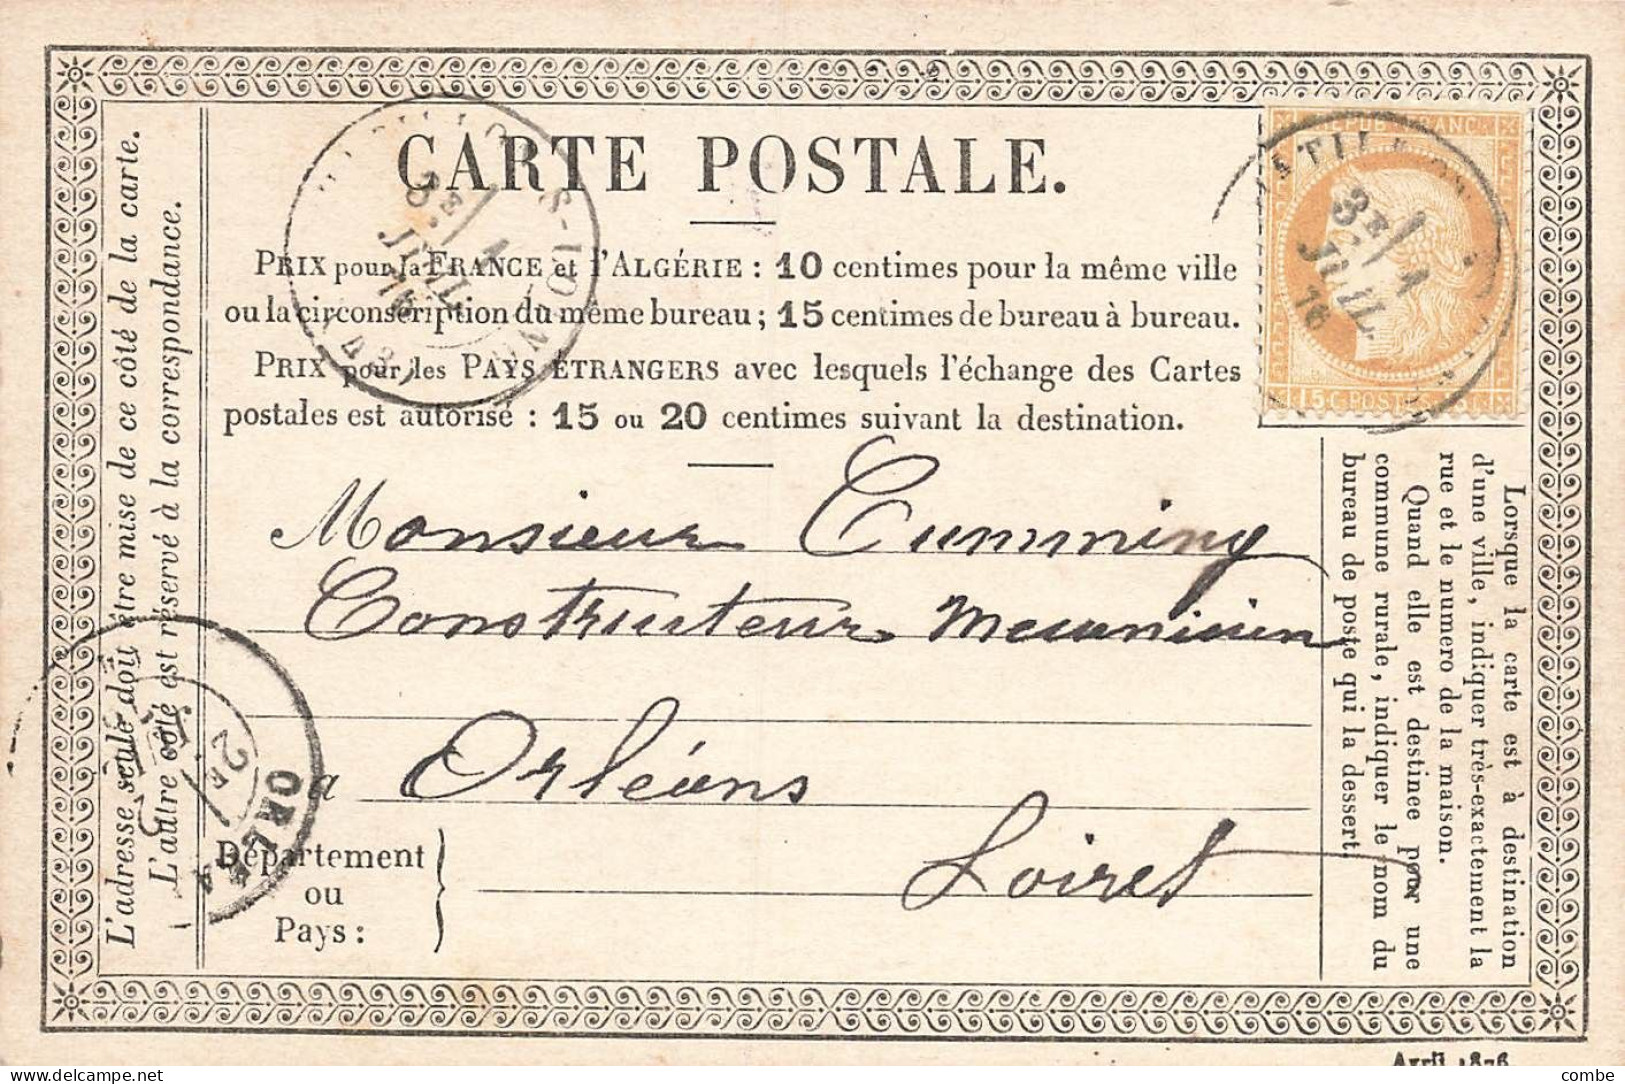 CARTE POSTALE.
PRIX pour la FRANCE et l'ALGÉRIE : 10 centimes pour la même ville
ou la circonscription du même bureau ; 15 centimes de bureau à bureau.
PRIX pour les PAYS ÉTRANGERS avec lesquels l'échange des Cartes
postales est autorisé : 15 ou 20 centimes suivant la destination.
Monsieur Cumming
Constructeur Mecanicien
à Orléans
Département
ou
Pays :
Loiret
L'adresse seule doit être mise de ce côté de la carte.
L'autre côté est réservé à la correspondance.
Lorsque la carte est à destination
d'une ville, indiquer très-exactement la
rue et le numero de la maison.
Quand elle est destinee pour une
commune rurale, indiquer le nom du
bureau de poste qui la dessert.
3E
1
JUIL
76
(43)
FRANC
3E
1
JUIL
76
15 C. POSTES 15 C.
2E
ORLEA
Avril 1876
delcampe.net
combe